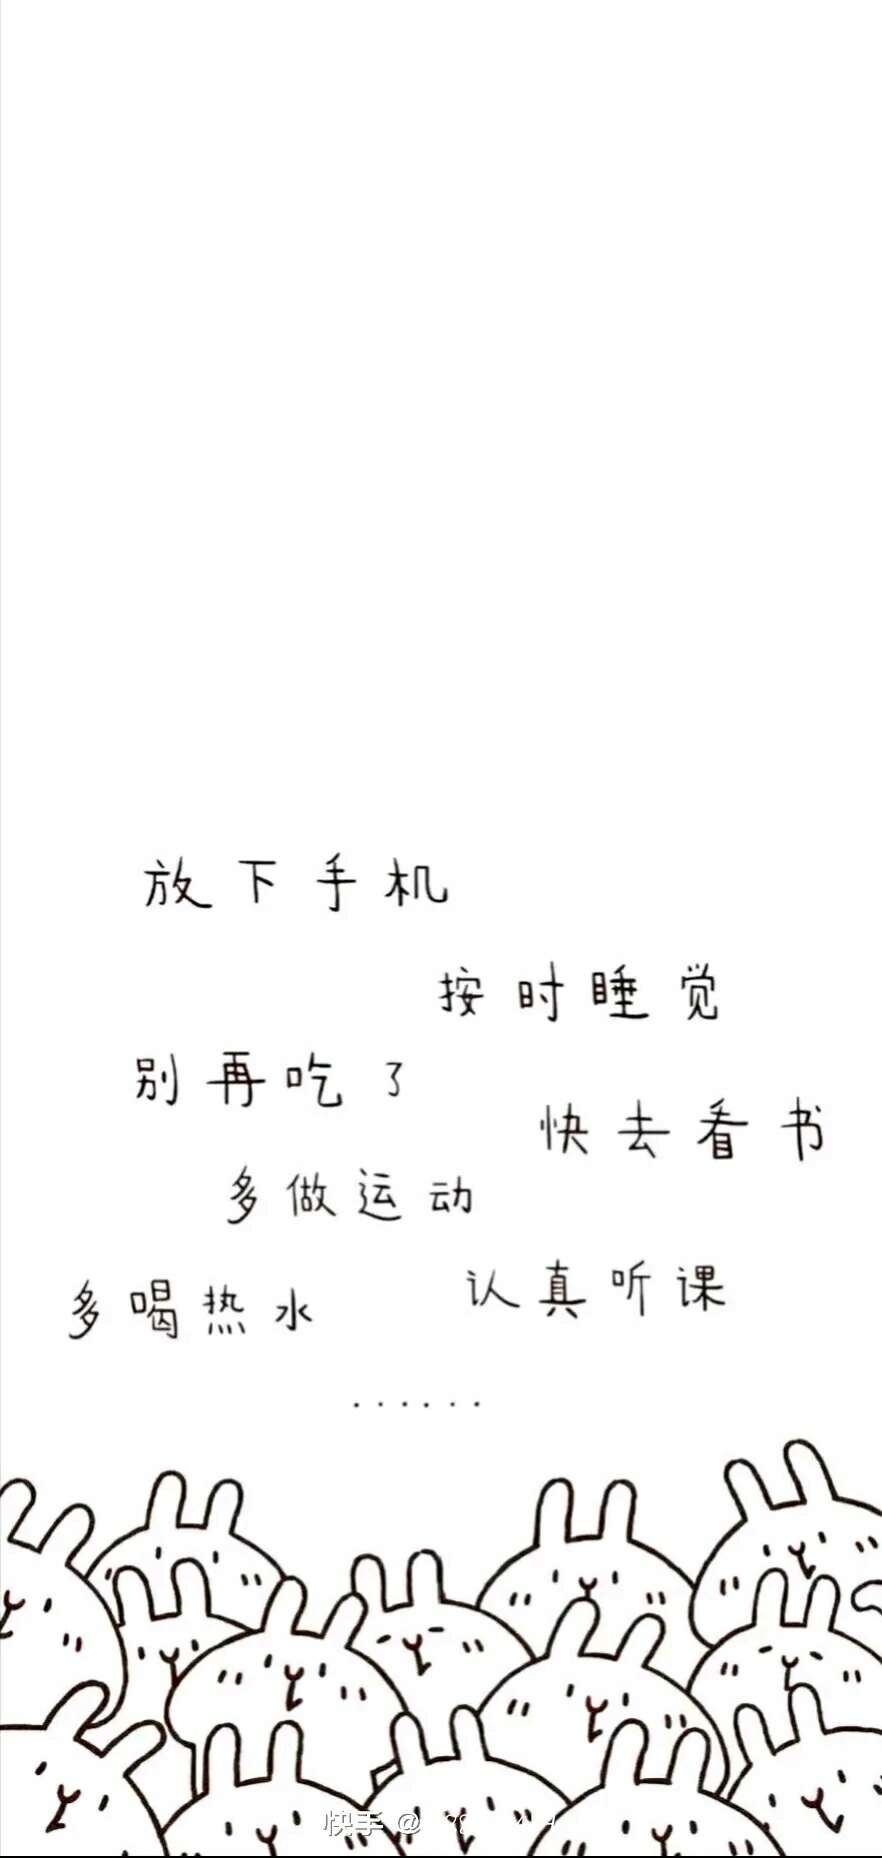 放下手机
按时睡觉
别再吃了
快去看书
多做运动
认真听课
多喝热水
......
快手 @